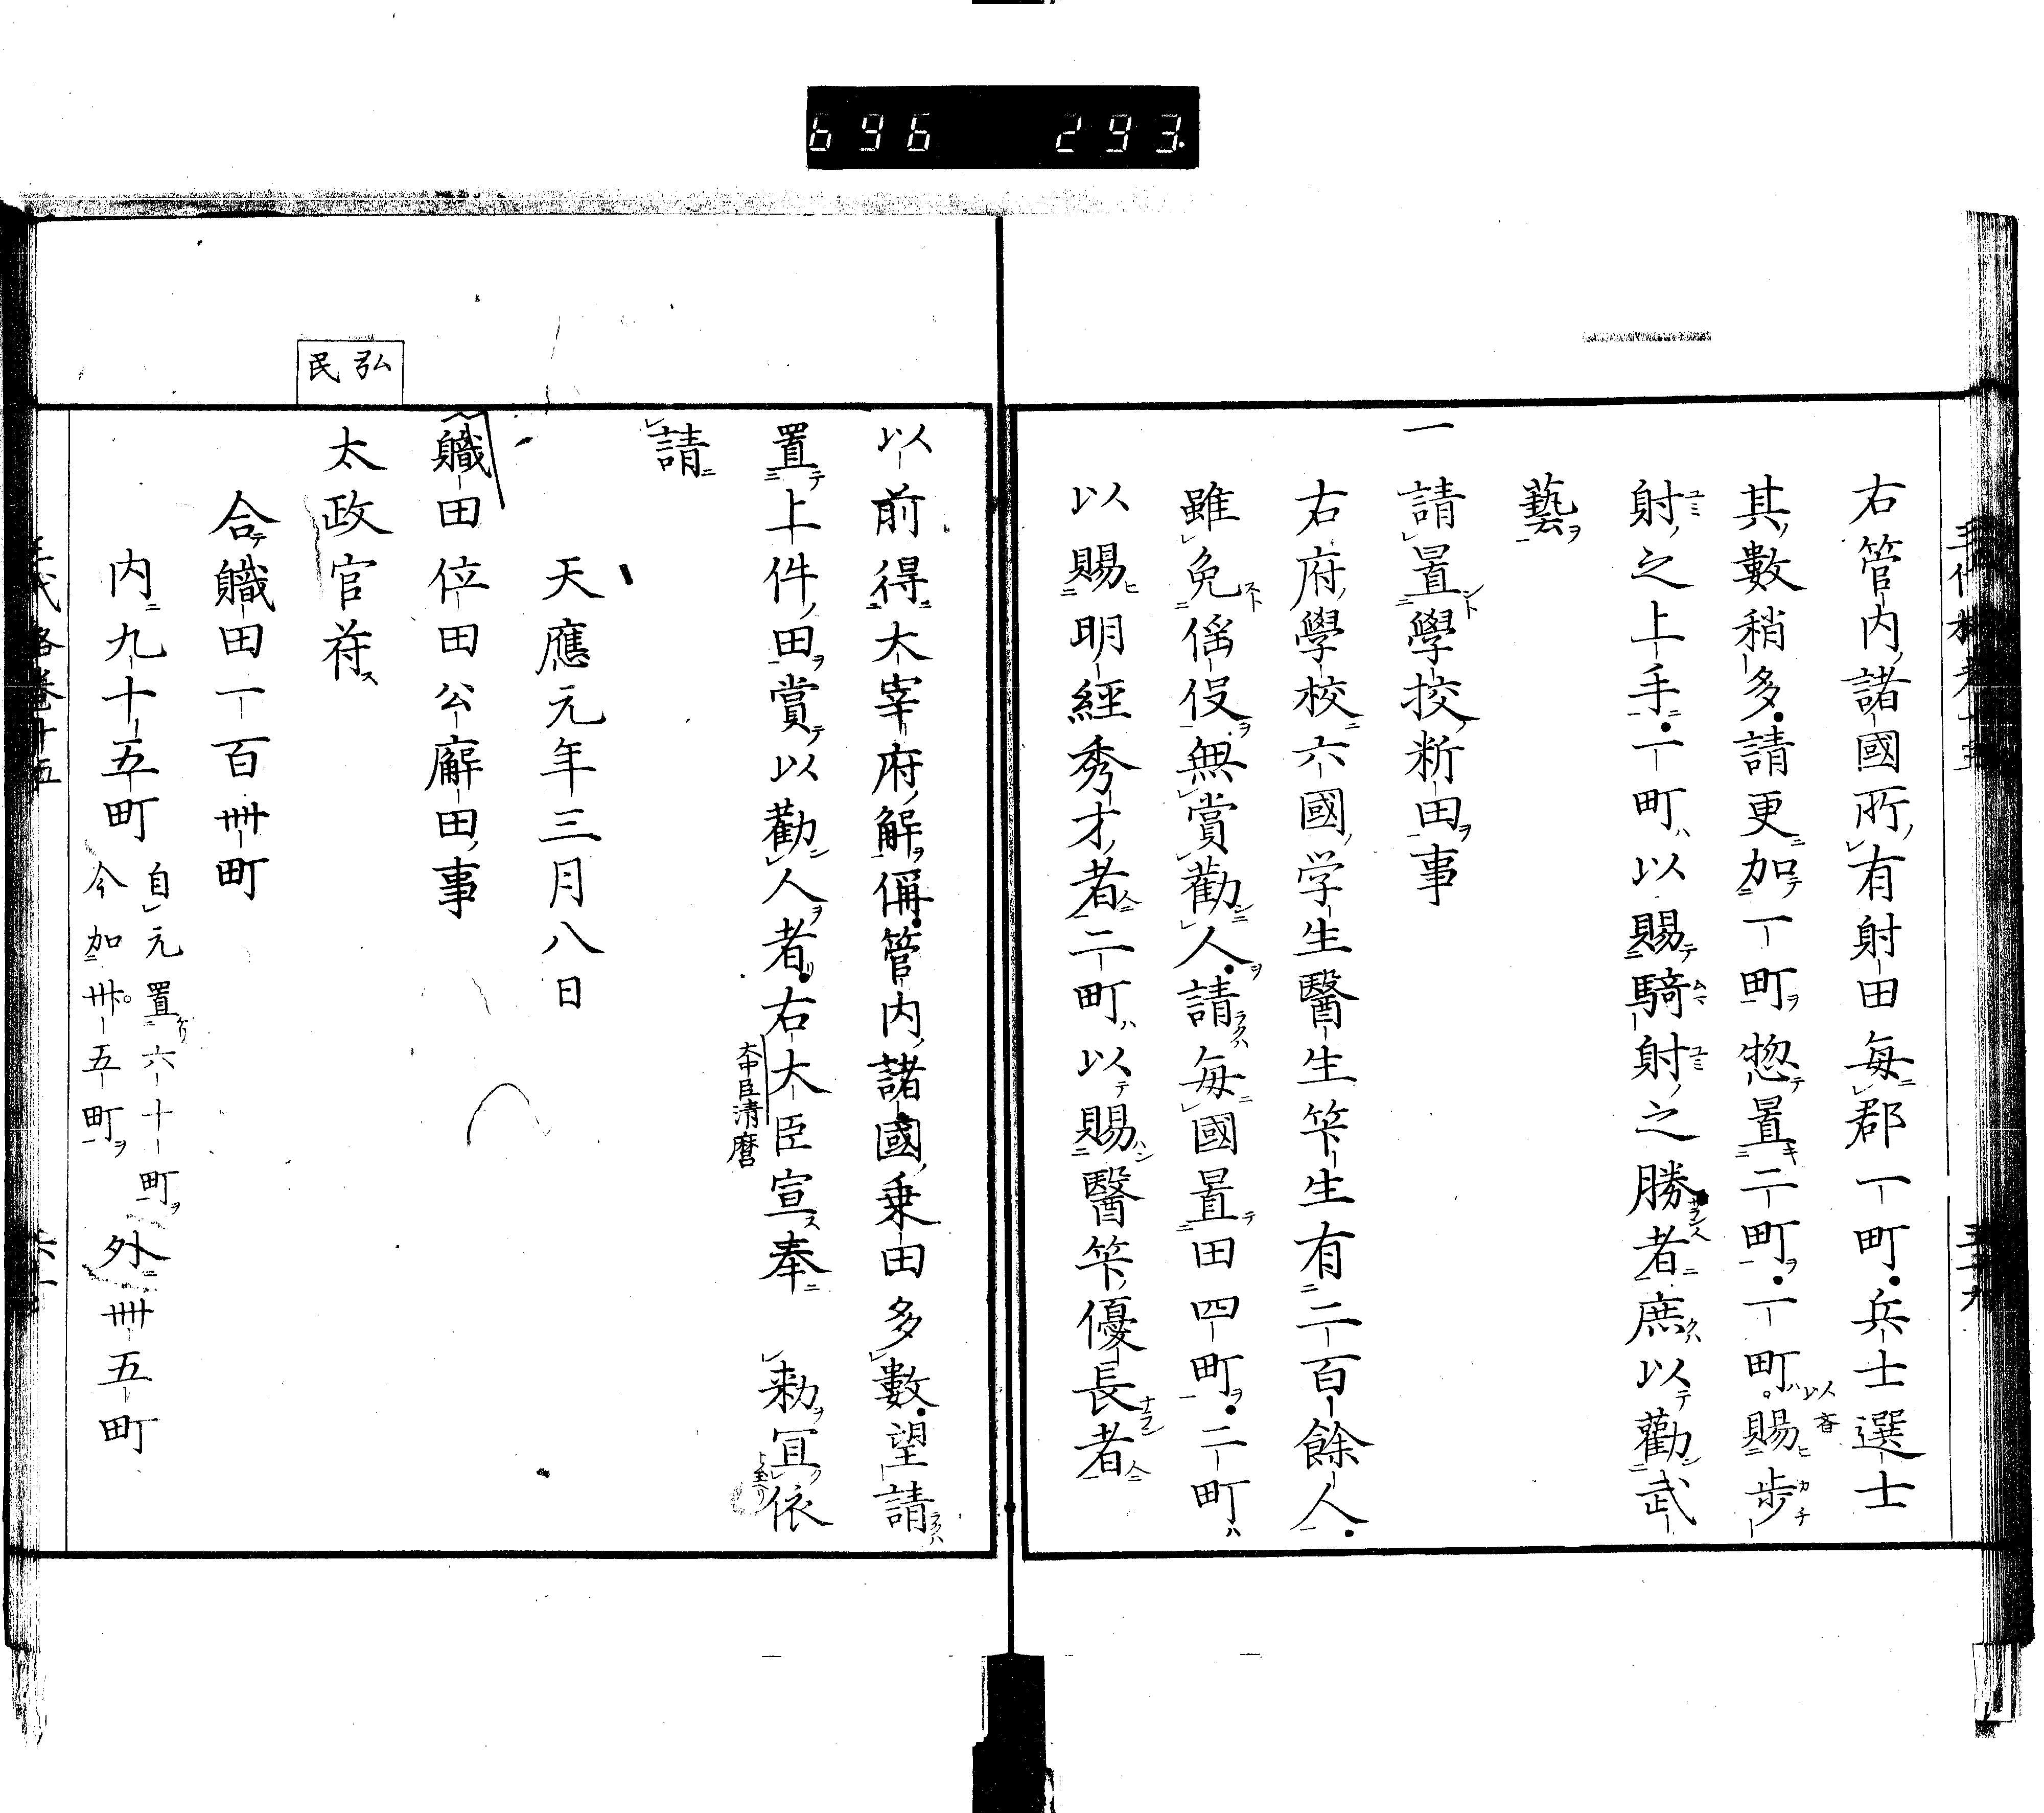 696 293
右管内諸國所有射田毎郡一町兵士選士
其數稍多請更加一町惣置二町一町以賜歩
射之上手一町以賜騎射之勝者庶以勸武
藝
一請置學校新田事
右府學校六國学生醫生笇生有二百餘人
雖免徭伇無賞勸人請毎國置田四町二町
以賜明經秀才者二町以賜醫笇優長者
以前得太宰府解偁管内諸國乗田多數望請
置上件田賞以勸人者右大臣宣奉 勅冝依
大中臣清麿
請
天應元年三月八日
職田位田公廨田事
弘民
太政官符
合職田一百卌町
内九十五町 自元置六十町 今加卅五町 外卌五町